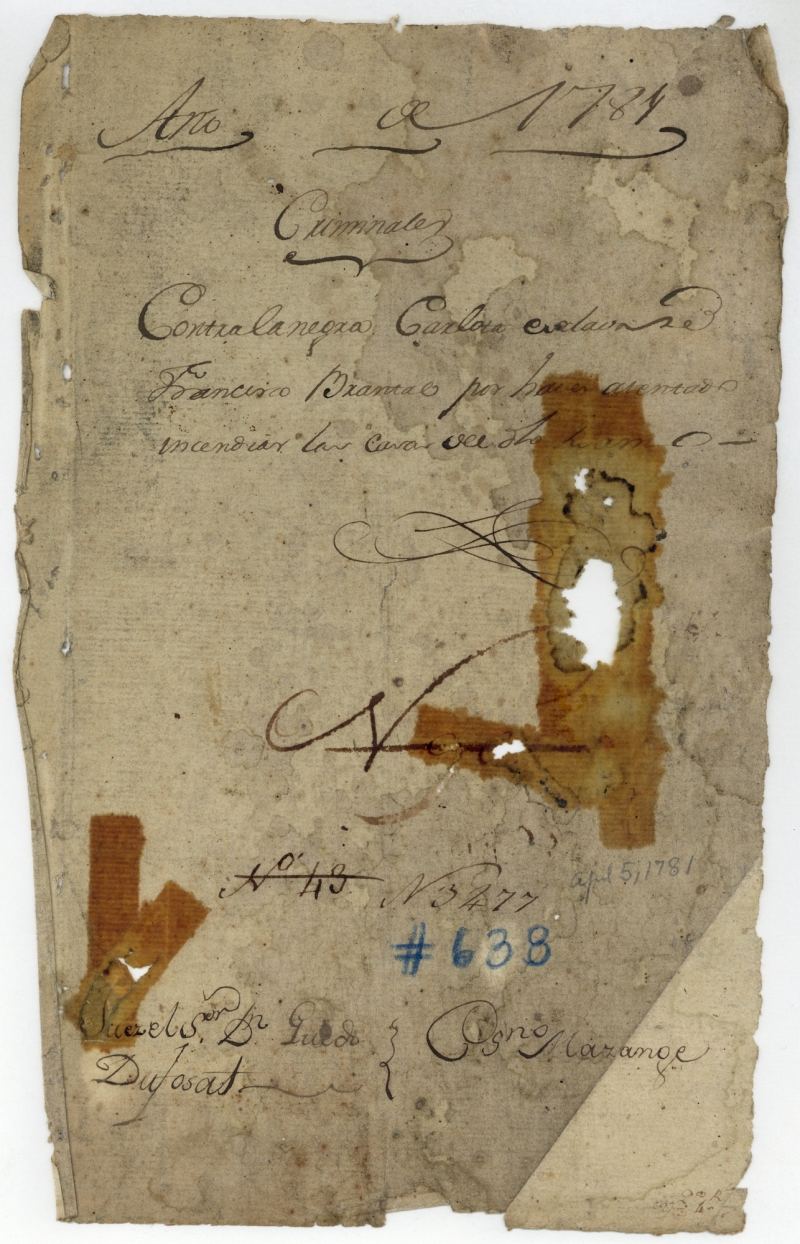 Año de 1781
Criminales
Contra la negra Carlota esclava de
Fran.co Brantas por haver atentado
incendiar las casas del dho su amo
N
No. 43 N 3477
april 5, 1781
#638
Juez el S.or Dn Guido
Dufosat
Esno Mazange